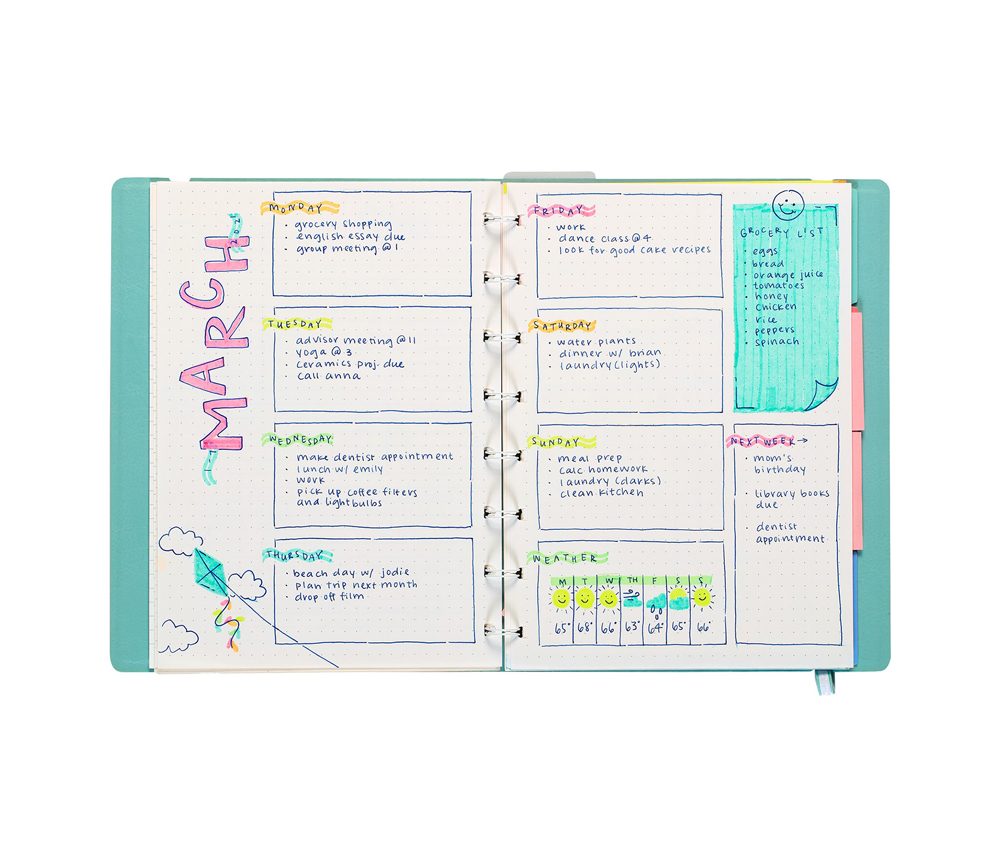 MARCH
MONDAY
grocery shopping
english essay due
group meeting @ 1
TUESDAY
advisor meeting @ 11
yoga @ 3
ceramics proj. due
call anna
WEDNESDAY
make dentist appointment
lunch w/ emily
work
pick up coffee filters
and lightbulbs
THURSDAY
beach day w/ jodie
plan trip next month
drop off film
FRIDAY
work
dance class @ 4
look for good cake recipes
SATURDAY
water plants
dinner w/ brian
laundry (lights)
SUNDAY
meal prep
calc homework
laundry (darks)
clean kitchen
WEATHER
M T W TH F S S
65° 68° 66° 63° 64° 65° 66°
GROCERY LIST
eggs
bread
orange juice
tomatoes
honey
chicken
rice
peppers
spinach
NEXT WEEK →
mom's
birthday
library books
due
dentist
appointment